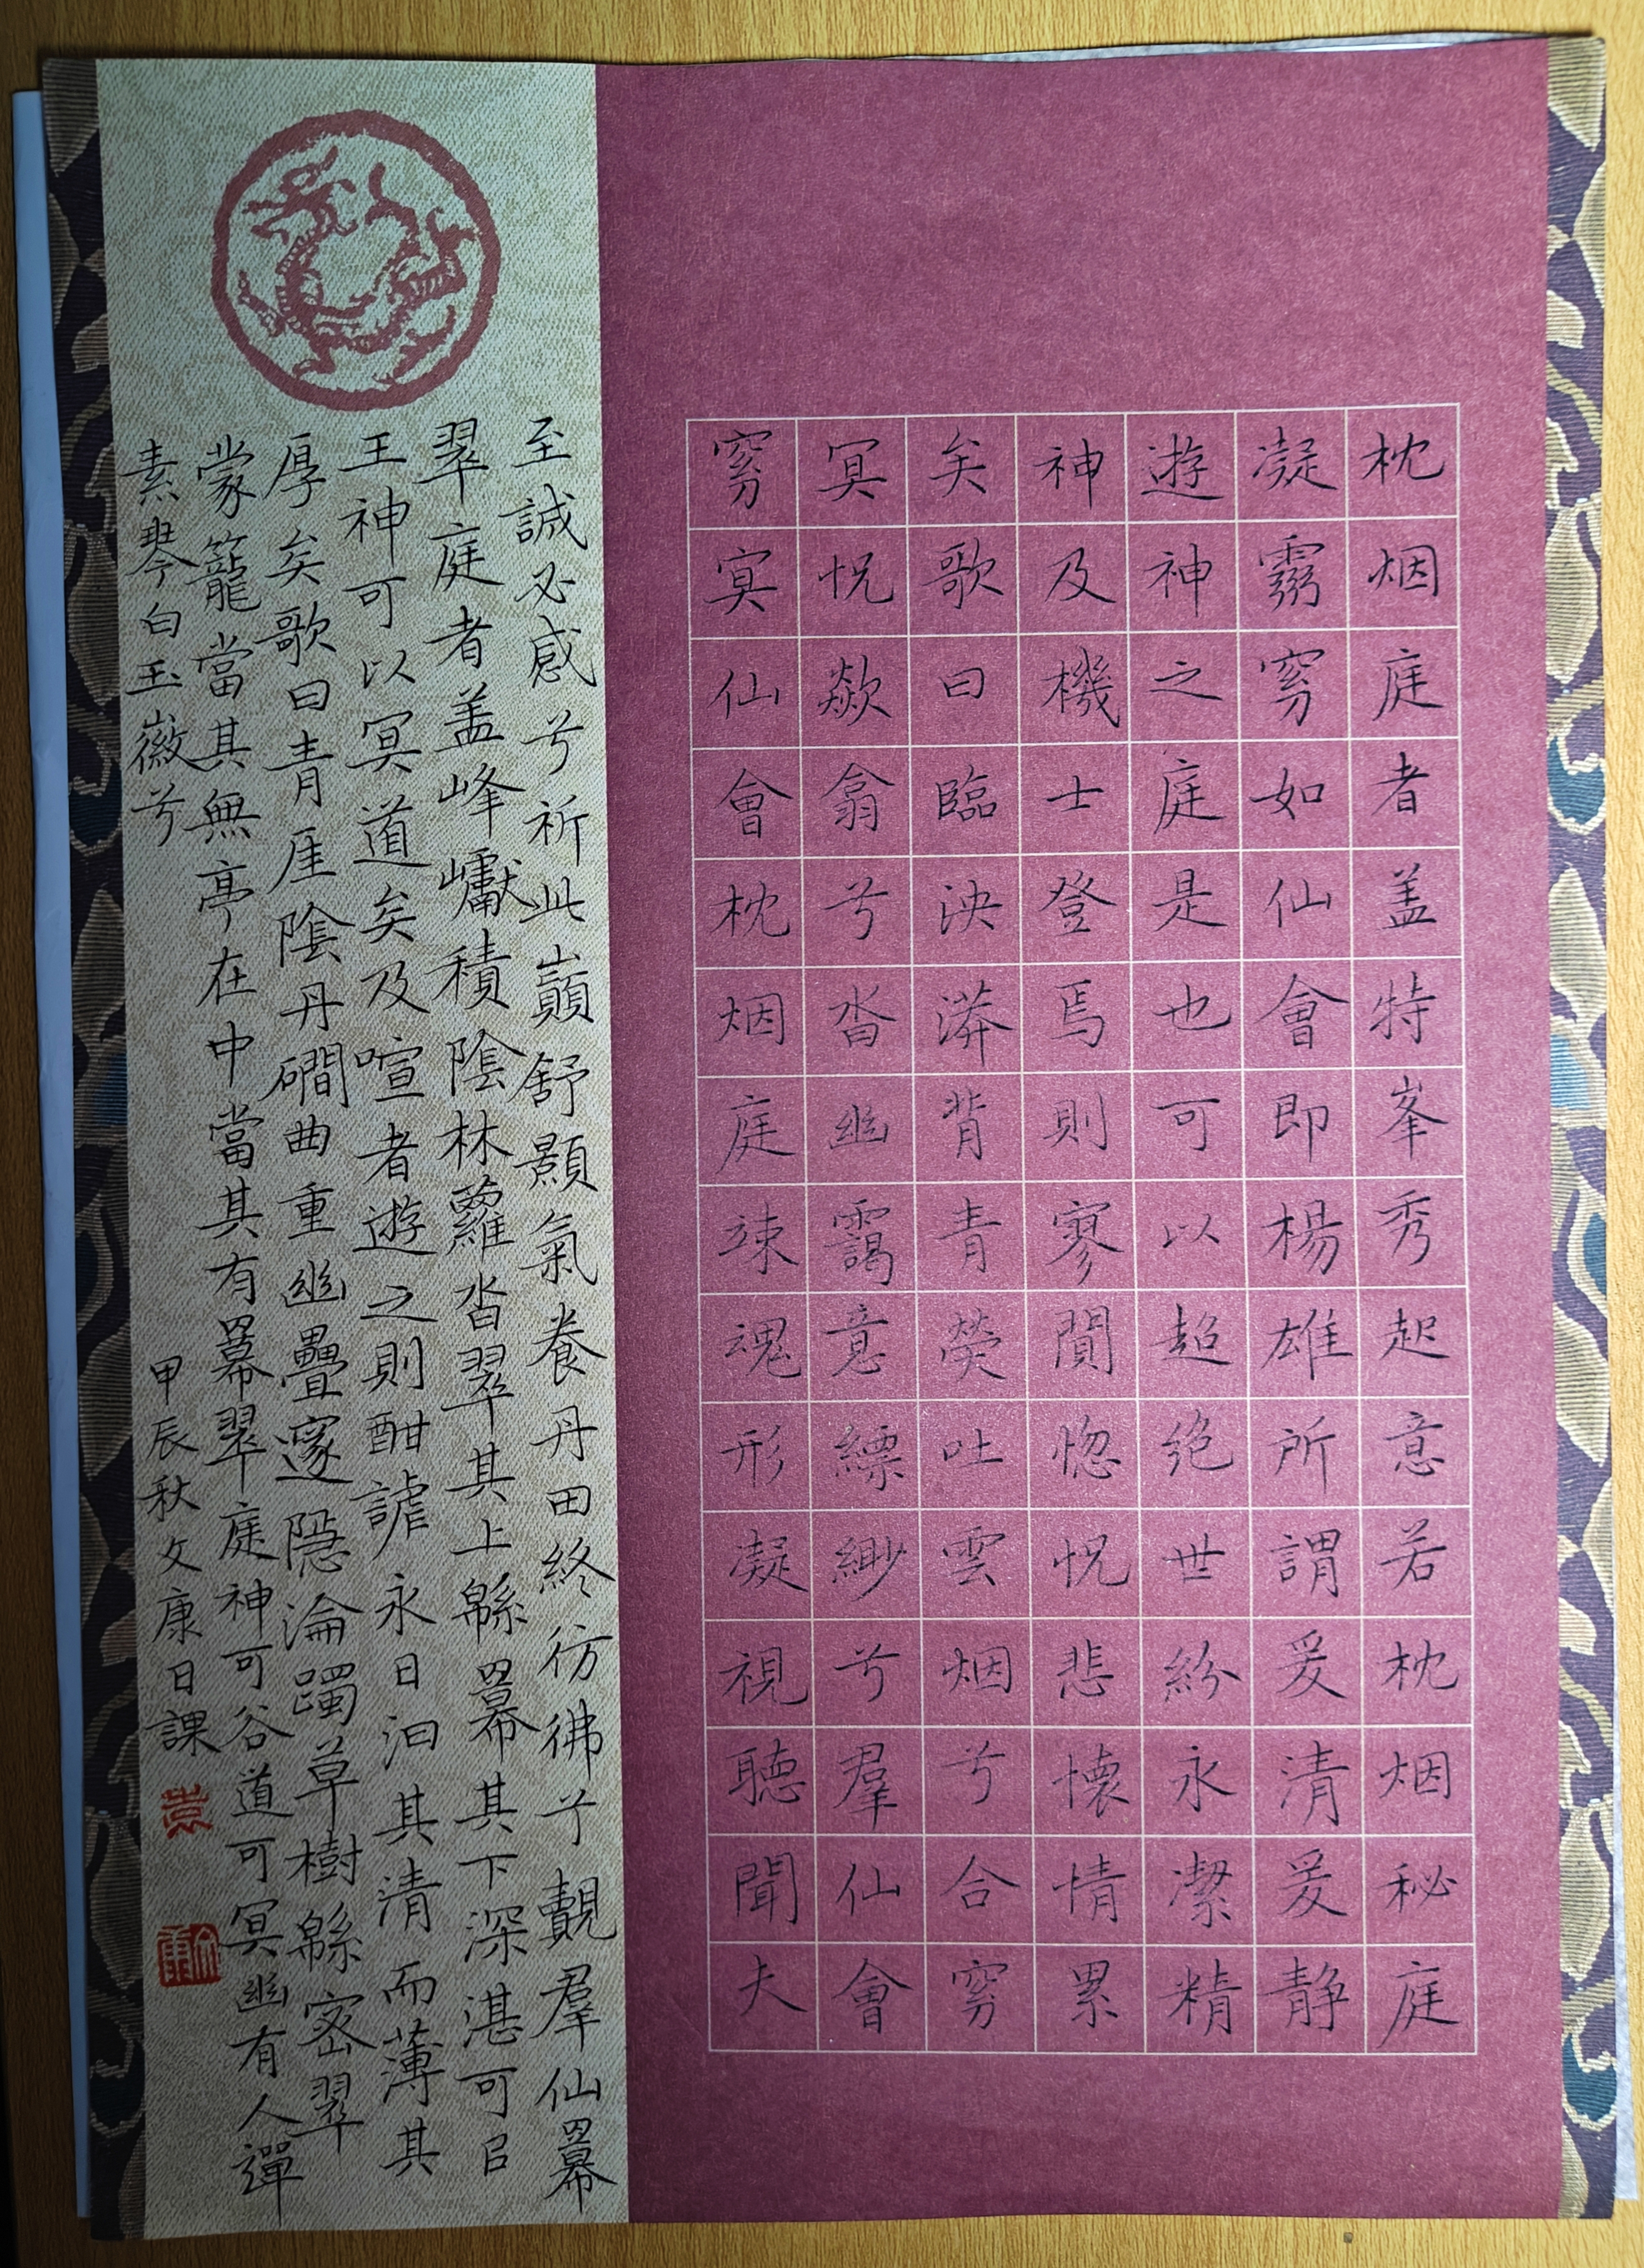 枕烟庭者盖特峯秀起意若枕烟秘庭
凝靈窅如仙會即楊雄所謂爰清爰静
遊神之庭是也可以超绝世紛永潔精
神及機士登焉則寥閴惚怳悲懷情累
矣歌曰臨泱漭背青熒吐雲烟兮合窅
冥怳欻翕兮沓幽靄意縹緲兮羣仙會
窅冥仙會枕烟庭竦魂形凝視聽聞夫
至誠必感兮祈此巔舒顥氣養丹田終彷彿兮覿羣仙羃
翠庭者盖峰巘積陰林蘿沓翠其上緜羃其下深湛可以
王神可以冥道矣及喧者遊之則酣謔永日汩其清而薄其
厚矣歌曰青厓陰丹磵曲重幽疊邃隱淪躅草樹緜密翠
蒙籠當其無亭在中當其有羃翠庭神可谷道可冥幽有人彈
素琴白玉徽兮
甲辰秋文康日課